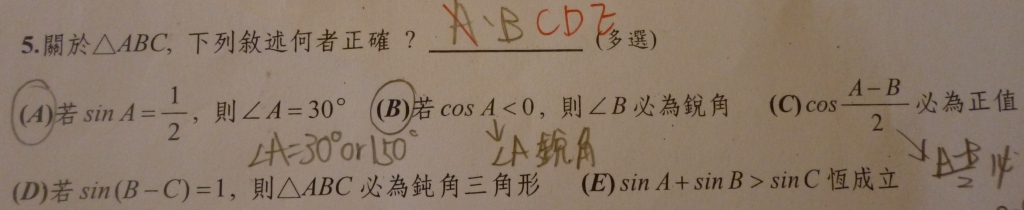 5.關於△ABC, 下列敘述何者正確 ? A、B CDE (多選)
(A)若 sin A = 1/2, 則∠A=30° (B)若 cos A<0, 則∠B 必為銳角 (C) cos (A-B)/2 必為正值
∠A=30° or 150° ∠A 銳角 A-B/2
(D)若 sin(B-C)=1, 則△ABC 必為鈍角三角形 (E) sin A+sin B>sin C 恆成立